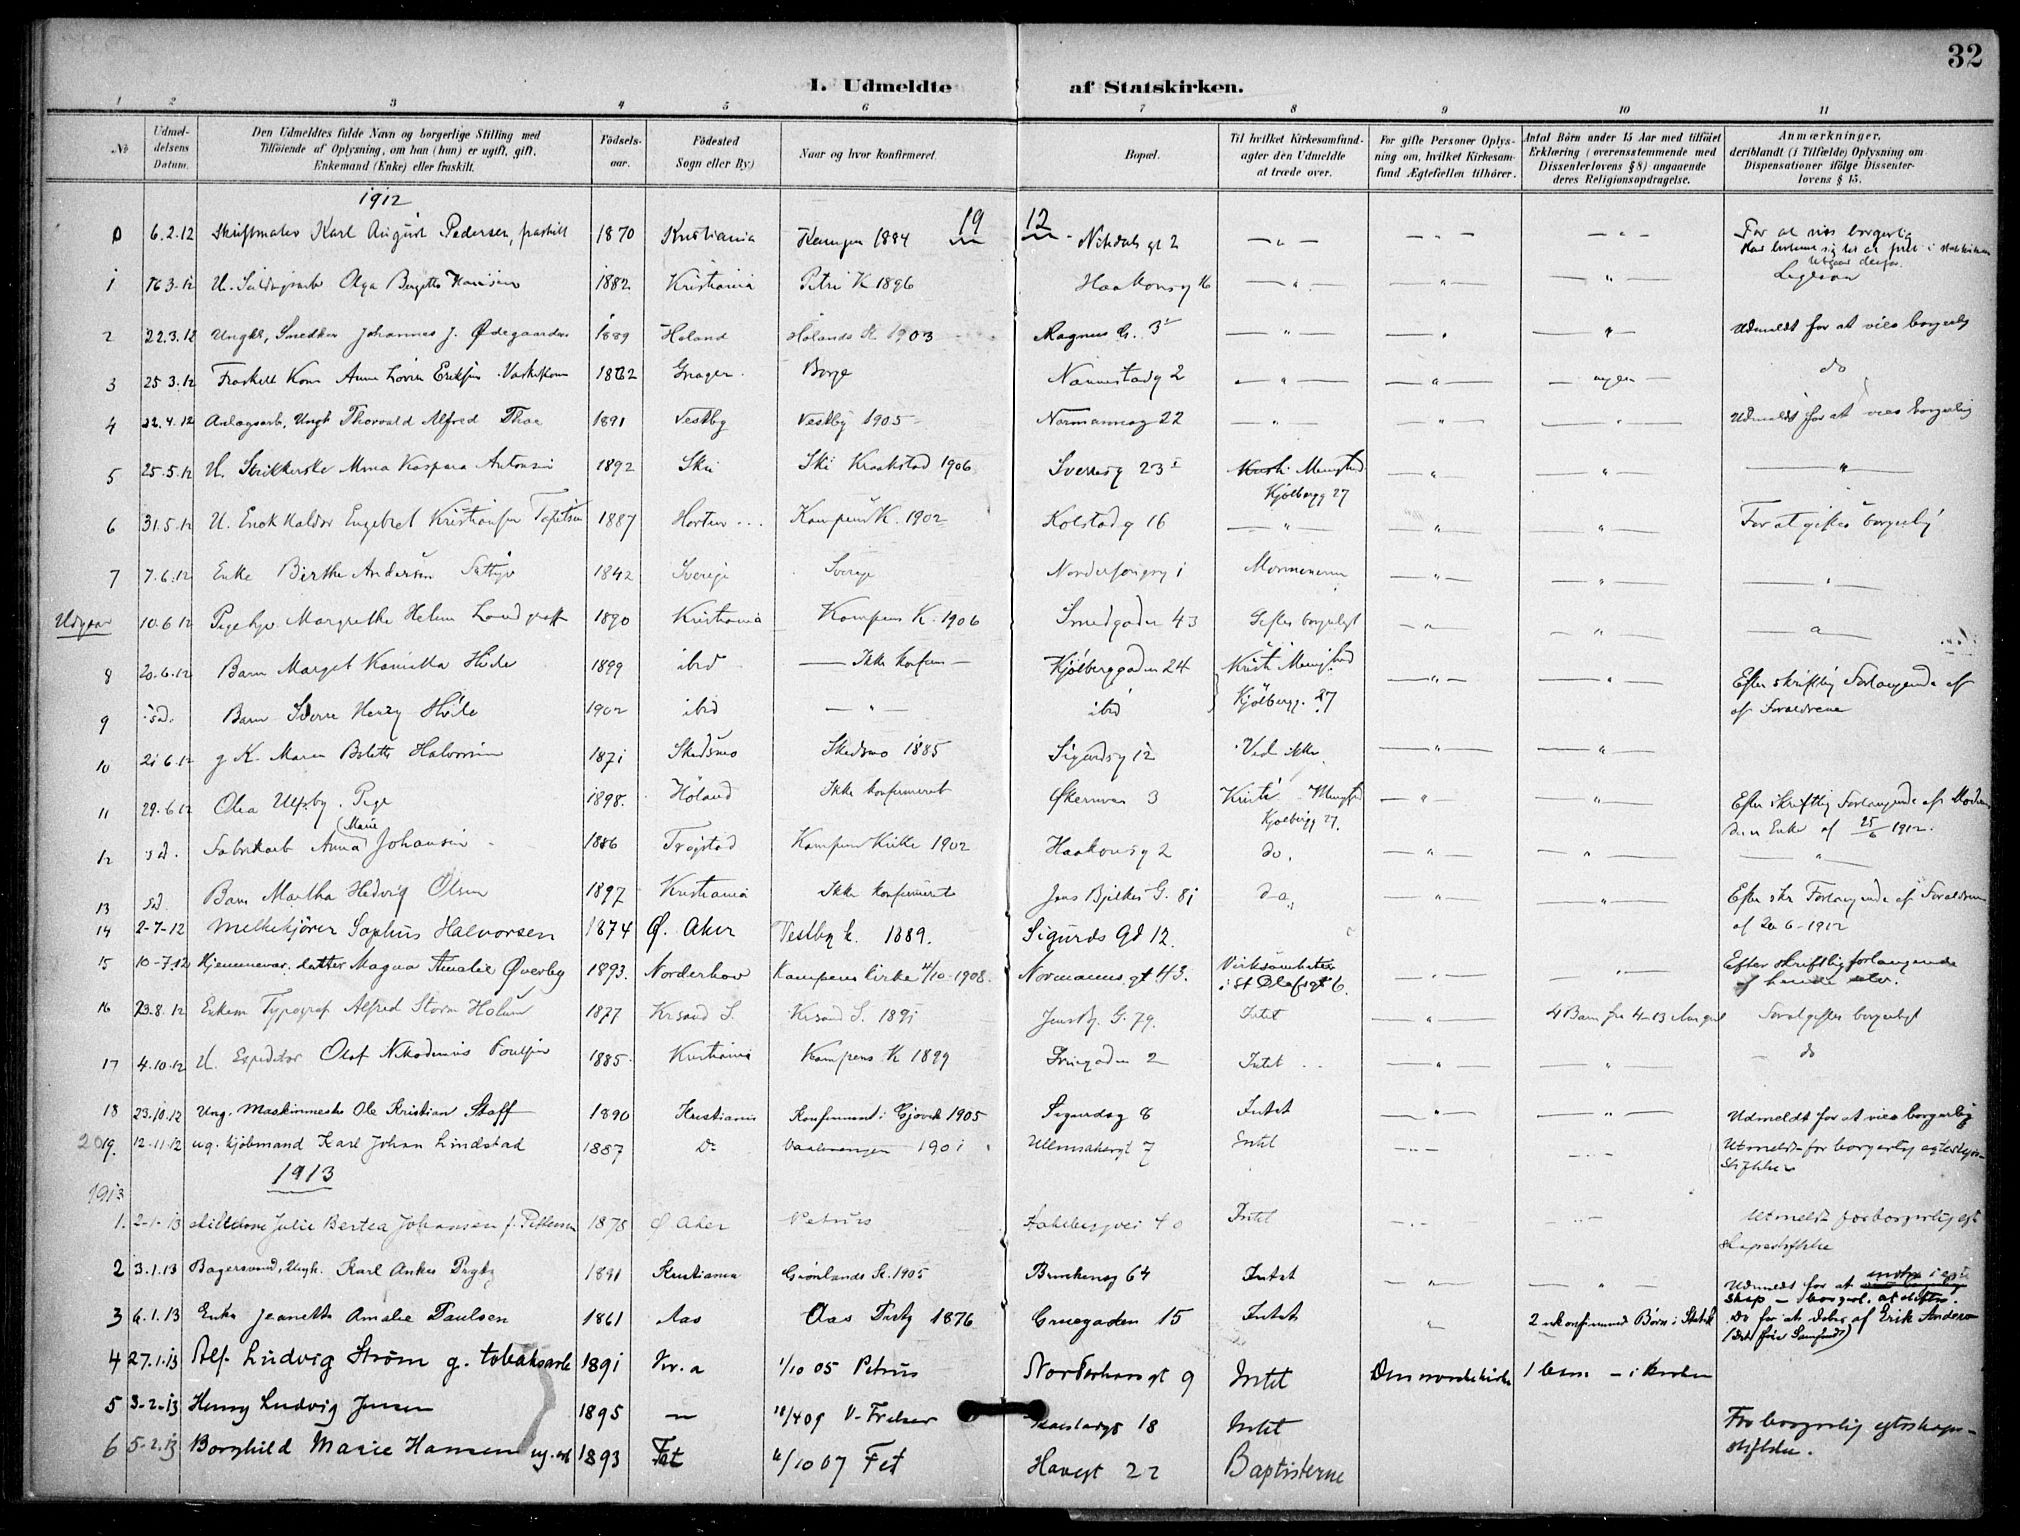 32
1. Udmeldte af Statskirken.
1 2 3 4 5 6 7 8 9 10 11
No
Udmeldelsens Datum.
Den Udmeldtes fulde Navn og borgerlige Stilling med
Tilføiende af Oplysning, om han (hun) er ugift, gift,
Enkemand (Enke) eller fraskilt.
Fødselsaar.
Fødested
Sogn eller By)
Naar og hvor konfirmeret.
Bopæl.
Til hvilket Kirkesamfund-
agter den Udmeldte
at træde over.
For gifte Personer Oplys-
ning om, hvilket Kirkesam-
fund Ægtefællen tilhører.
Antal Børn under 15 Aar med tilføiet
Erklæring (overensstemmende med
Dissenterlovens § 8) angaaende
deres Religionsopdragelse.
Anmærkninger,
deriblandt (i Tilfælde) Oplysning om
Dispensationer ifølge Dissenter-
lovens § 15.
1912
19 12
0 6.2.12 Karl August Pedersen, fraskilt 1870 Kristiania Kampen 1884 Nitedals gt 2 For at vies borgerlig
1 16.3.12 U. Olga Birgitte Hansen 1882 Kristiania Petri K 1896 Haakonsg 16
2 22.3.12 Ungkl, Snedker Johannes J. Ødegaarden 1889 Høland Hølands K 1903 Magnus G. 3 Udmeldt for at vies borgerlig
3 25.3.12 Fraskilt Kone Anna Lovise Eriksen 1862 Borge Nannestadg 2 ingen do
4 22.4.12 Anlægsarb, Ungk Thorvald Alfred Thoe 1891 Vestby Vestby 1905 Normannsg 22 Udmeldt for at vies borgerlig
5 25.5.12 U. Strikkerske Kaspara Antonsen 1892 Ski Ski Kraakstad 1906 Sverresg 23 Menighed
Kjølbergg 27
6 31.5.12 U. Engebret Kristiansen 1887 Horten Kampens K. 1902 Kolstadg 16 For at giftes borgerlig
7 7.6.12 Enke Birthe Andersen 1842 Sverige Sverige 1 Mormonerne
Udgaar 10.6.12 Margrethe Helene 1890 Kristiania Kampens K. 1906 Smedgaden 43 Giftes borgerligt
8 20.6.12 Barn Margit Kamilla 1899 ibid Ikke konfirm Kjølberggaden 24 Krist. Menighed
9 s.d. Barn Sverre Henry 1902 ibid ibid Kjølbergg. 27 Efter skriftlig Forlangende af
af Forældrene
10 21.6.12 g K. Maren Bolette Halvorsen 1871 Skedsmo Skedsmo 1885 Sigurdsg 12 Ved ikke
11 29.6.12 Olea Ulfsby. Pige 1898. Høland Ikke konfirmeret Økernvei 3 Kristi Menighed
Kjølbergg 27. Efter skriftlig Forlangende af Moderen
den Enke af 25/6 1912.
12 s.d. Fabrikarb Anna (Marie) Johansen 1886 Trøgstad Kampens Kirke 1902 Haakonsg 2 do.
13 s.d. Barn Martha Hedvig Olsen 1897 Kristiania Ikke konfirmeret Jens Bjelkes G. 81 do. Efter skr Forlangende af Forældrene
af 6-1912
14 2-7-12 Melkekjører Sophus Halvorsen 1874 Ø. Aker Vestby k. 1889. Sigurds Gd 12.
15 10-7.12 Hjemmevær. datter Magna Amalie Øverby 1893. Norderhov Kampens kirke 4/10-1908. Normanns gt 43. Virksomheten
i St Olafsgt 6. Efter skriftlig forlangende
af hende selv.
16 23.8.12 Enkem Typograf Alfred Storm Holum 1877 Krsand S. Krsand S. 1891 Jens Bj. G. 79. Intet 4 Barn fra 4-13 Aar For at giftes borgerligt
17 4.10.12 U. Expeditør Olaf Nikodemus Poulsen 1885. Kristiania Kampens K 1899 2 Intet do
18 23.10.12 Ung. Maskinmester Ole Kristian Staff 1890 Kristiania Konfirmeret i Gjøvik 1905 Sigurdsg 8 Intet Udmeldt for at vies borgerlig
19. 12-11-12 ug. kjøbmand Karl Johan Lindstad 1887 Do Vaalerengen 1901 Ullensakergt 7 Intet Utmeldt for borgerlig egteskaps-
stiftelse
1913
1913
1. 2-1-13 Julie Bertea Johansen f. Pettersen 1878 Ø Aker Petrus 40 Intet Utmeldt for borgerlig egte
skapsstiftelse
2 3.1.13 Bagersvend, Ungk. Karl Anker 1891 Kristiania Grønlands K. 1905 64 Intet Udmeldt for at i egte
skap – borgerl.
3 6.1.13 Enke Jeanette Amalie Paulsen 1861 Aas Aas 1876 Gruegaden 15 Intet 2 ukonfirmerede Børn i Statsk Do for at døbes af Erik Anderson
(Det frie Samfund)
4 27.1.13 Alf Ludvig Strøm g. tobaksarb 1891 Kr.a 1/10 05 Petrus Norderhovsgt 9 Intet Den norske kirke 1 barn – i kirken
5 3-2-13 Henry Ludvig Jensen 1895 18/4 09 V. Frelser 18 Intet For borgerlig egteskaps-
stiftelse.
6 5-2.13 Borghild Marie Hansen 1893 Fet /10 07 Fet Havegt 22 Baptisterne